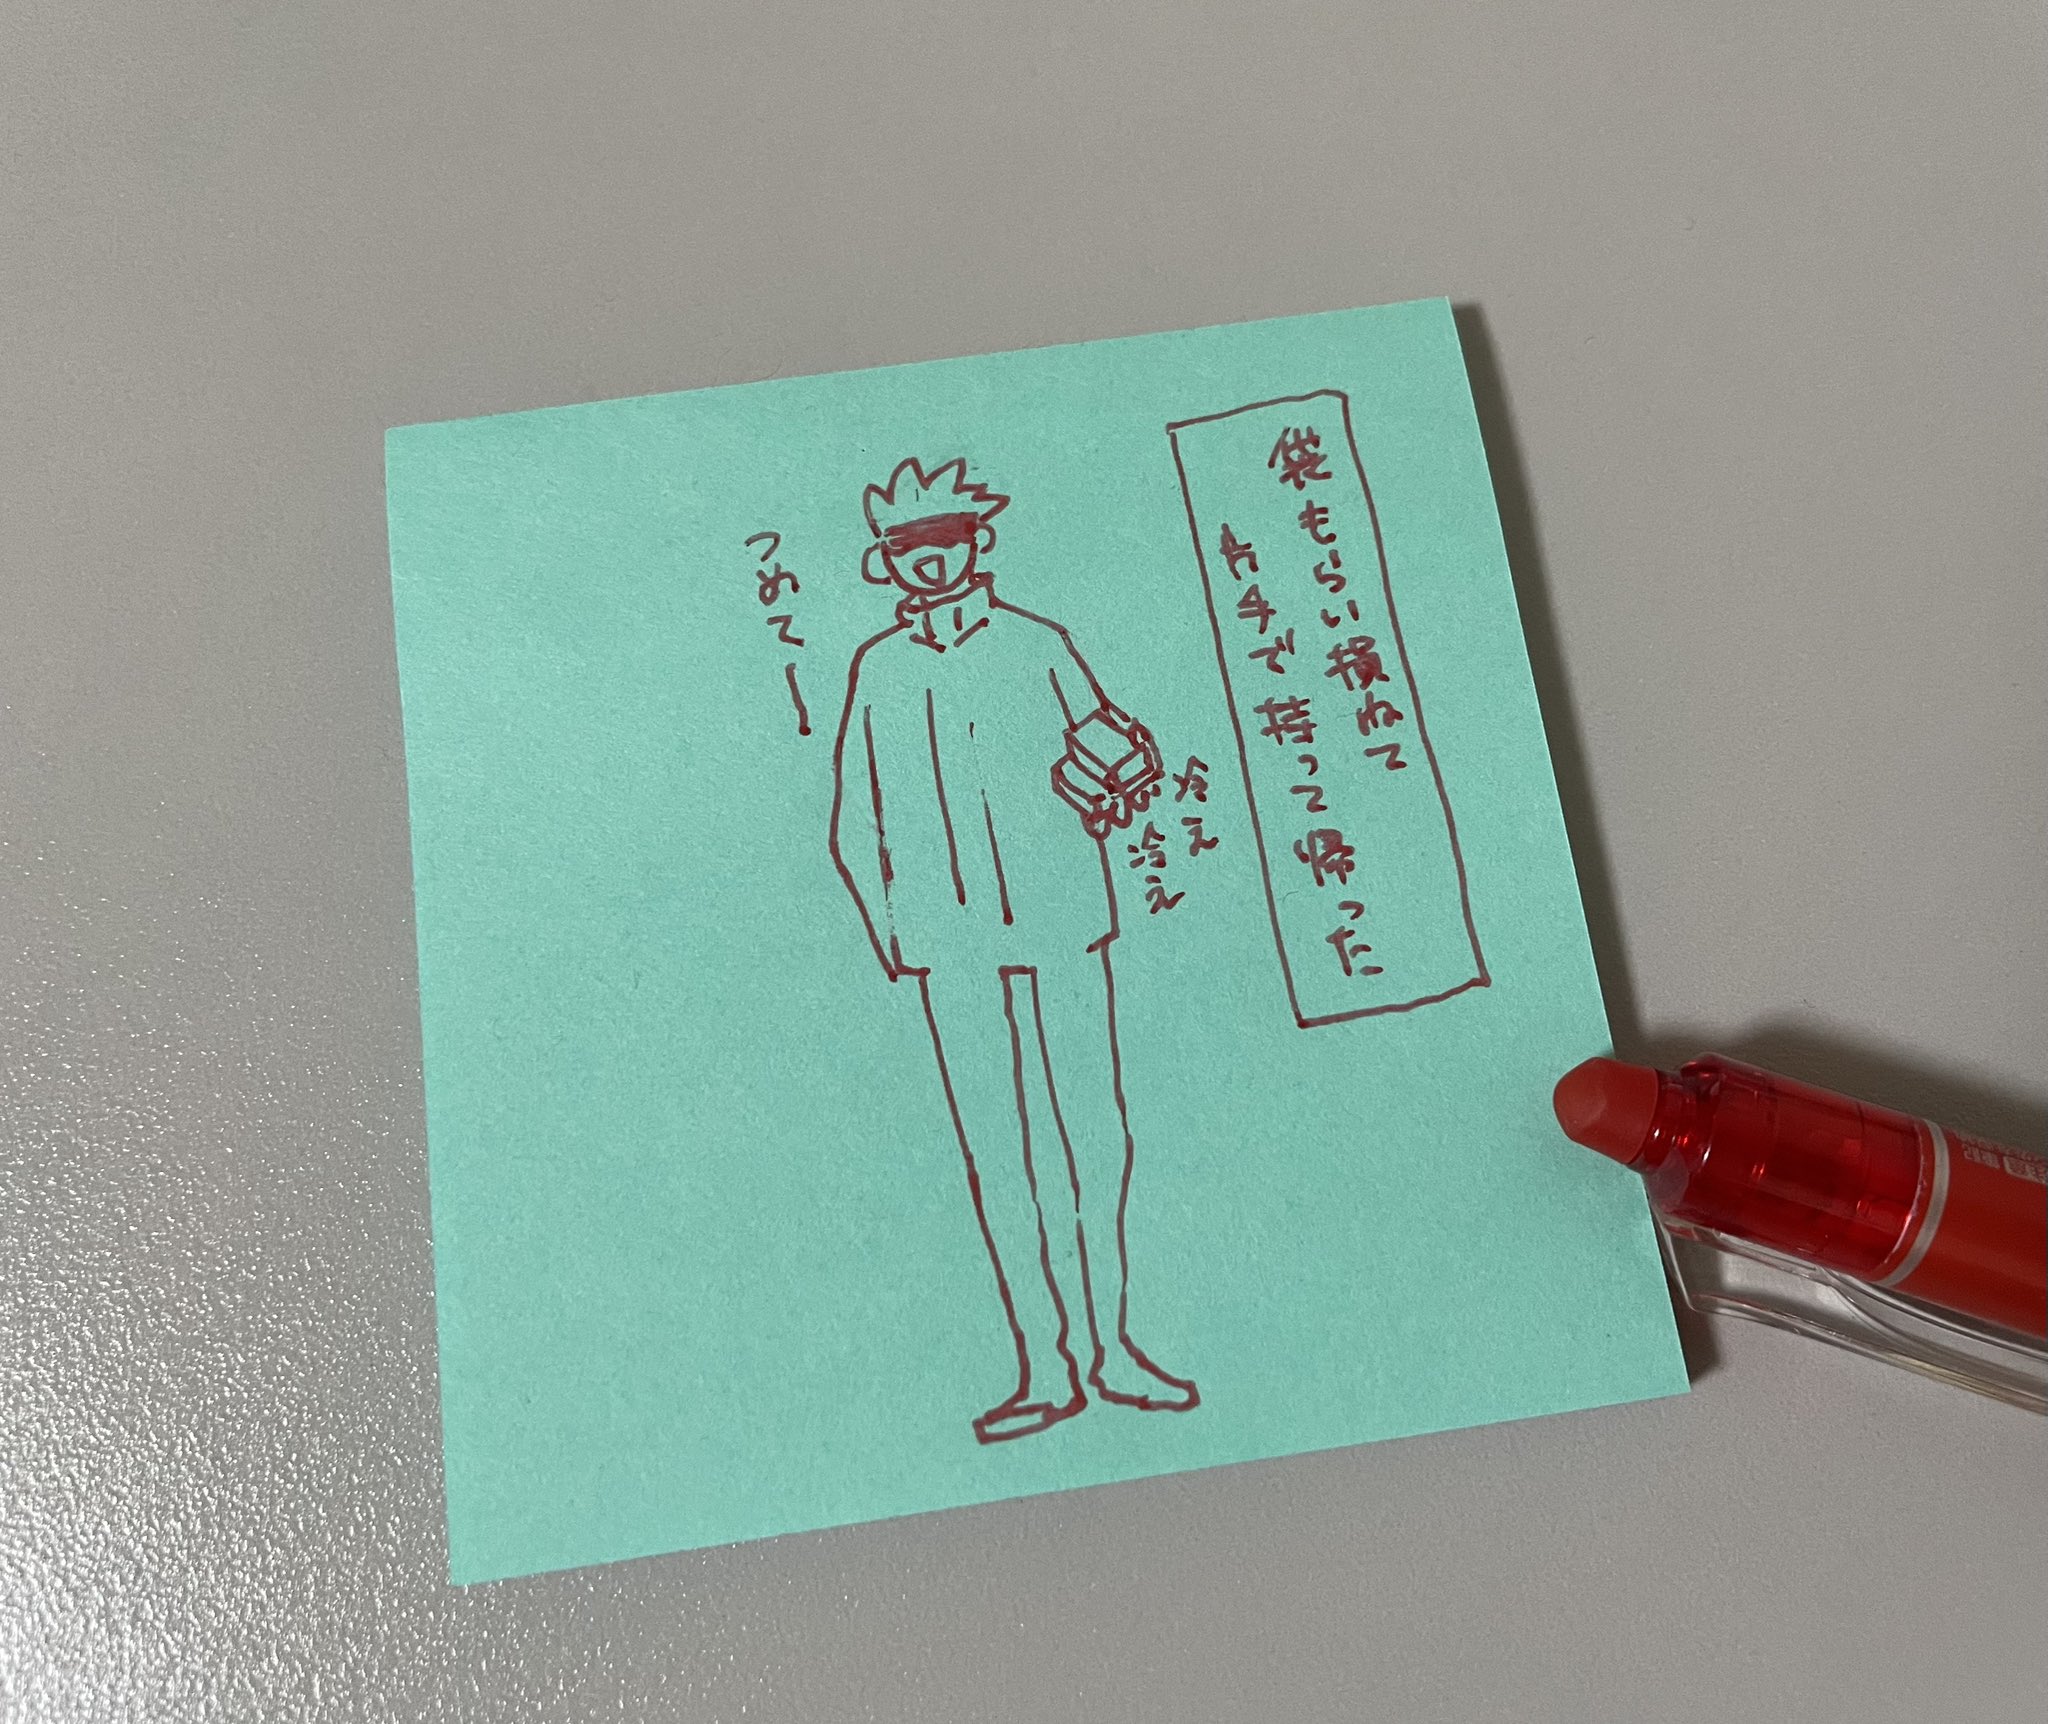 袋もらい損ねて
片手で持って帰った
冷え
冷え
つめてー